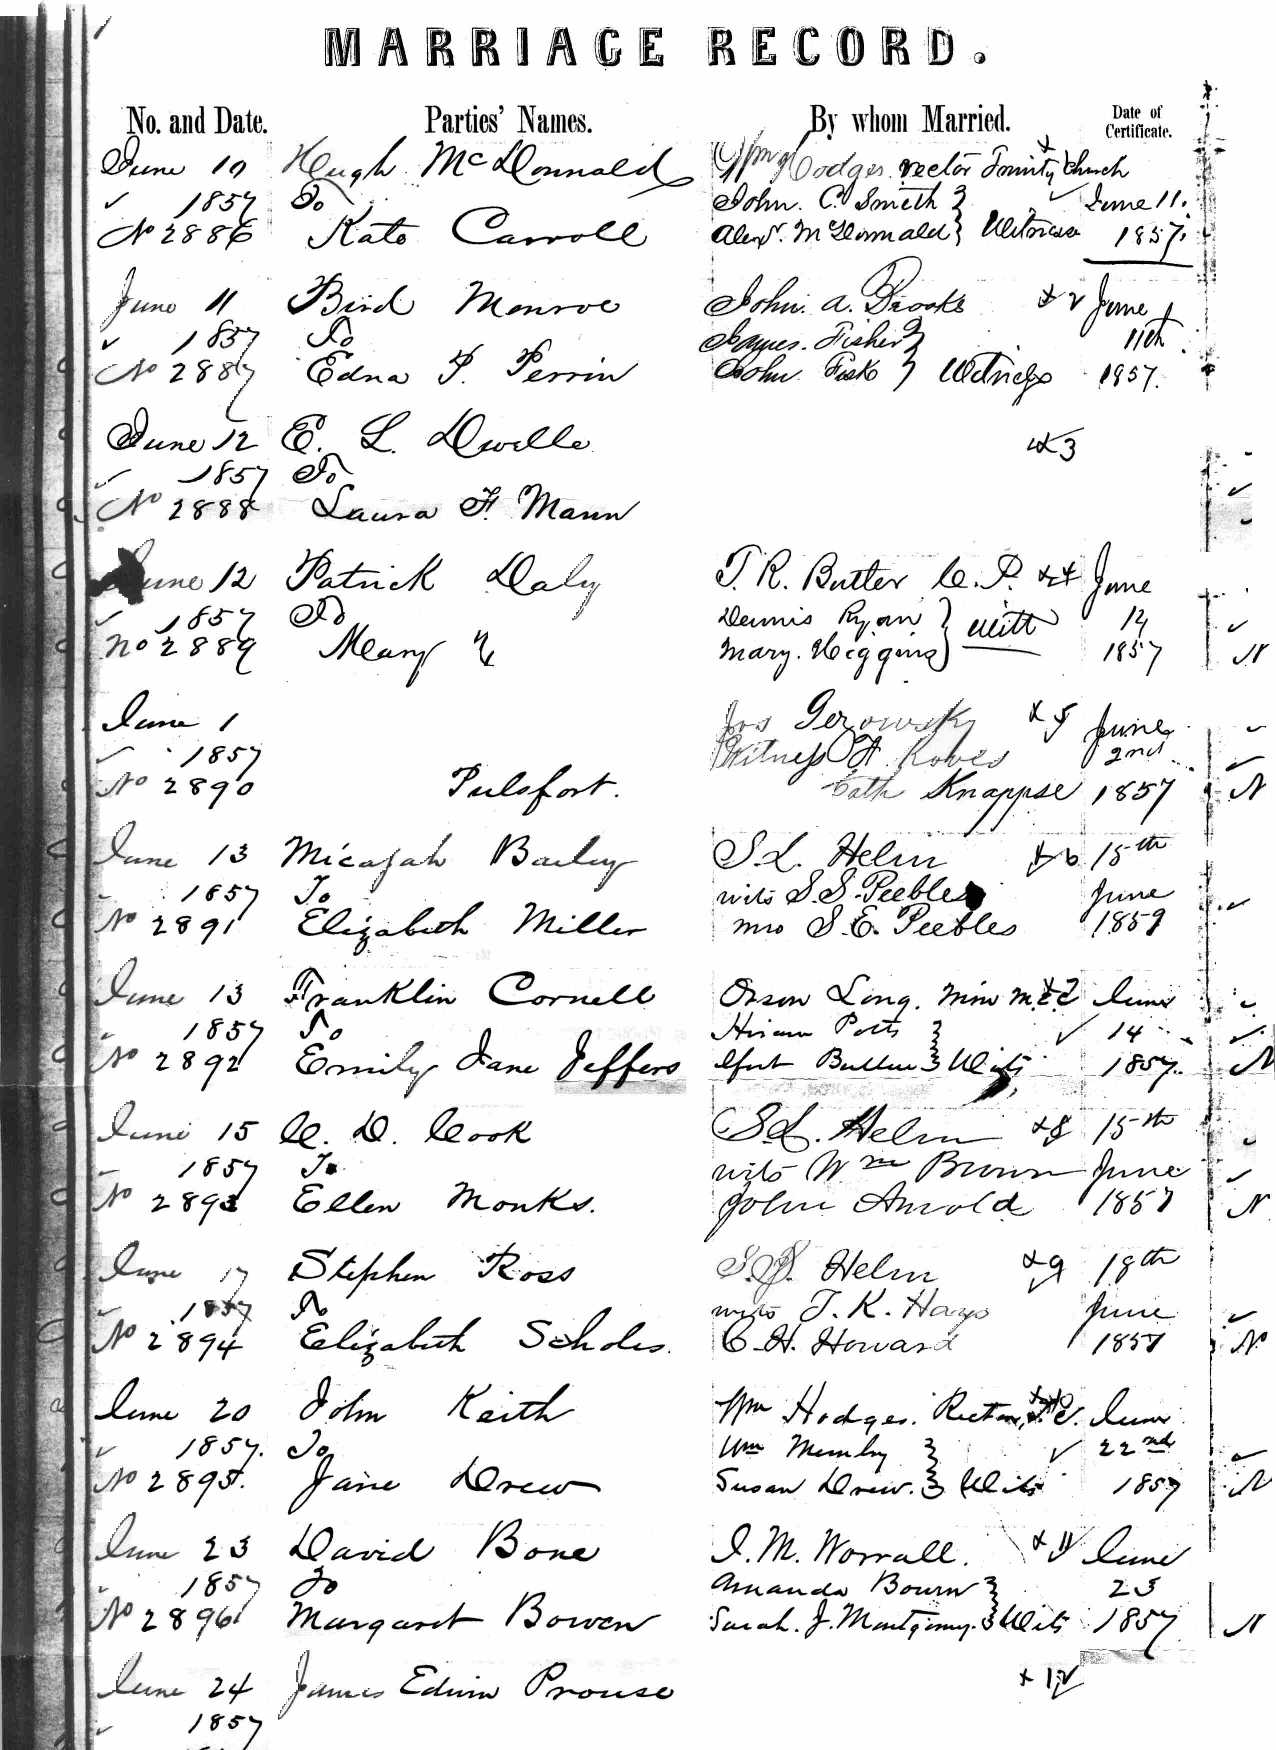 MARRIAGE RECORD.
No. and Date. Parties' Names. By whom Married. Date of Certificate.
June 10 Hugh McDonnald Wm Hodges rector Trinity Church
1857 To John. C. Smith June 11.
No 2886 Kate Carroll Alexr. McDonnald Witness 1857.
June 11 Bird Monroe John. A. Brooks x 2 June
1857 To James. Fisher 11th
No 2887 Edna P. Perrin John Fisk Witness 1857.
June 12 E. L. Dwelle x3
1857 To
No 2888 Laura H. Mann
June 12 Patrick Daly T. R. Butler C. P. x4 June
1857 To Dennis Ryan Witt 12
No 2889 Mary Mary. Higgins 1857
June 1 Jos Gezowsky x 5 June
1857 Witness H. 2nd
No 2890 Pulsfort. Cath Knappse 1857
June 13 Micajah Bailey S. L. Helm x6 15th
1857 To wits S. S. Peebles June
No 2891 Elizabeth Miller Mrs S. E. Peebles 1859
June 13 Franklin Cornell Orson Long. Min M. E. C June
1857 To Hiram Potts 14
No 2892 Emily Jane Jeffers Wits 1857.
June 15 C. D. Cook S. L. Helm x8 15th
1857 To wits Wm Brown June
No 2893 Ellen Monks. John Arnold 1857
June 17 Stephen Ross S. L. Helm x9 18th
1857 To wits T. K. Hays June
No 2894 Elizabeth Scholes. C. H. Howard 1857
June 20 John Keith Wm Hodges. Rector June
1857. To Wm 22nd
No 2895. Jane Drew Susan Drew. Wits 1857
June 23 David Bone I. M. Worrall. x 11 June
1857 To Amanda Bourn 23
No 2896 Margaret Bowen Sarah. J. Montgomy. Wits 1857
June 24 James Edwin Prouse x 12
1857